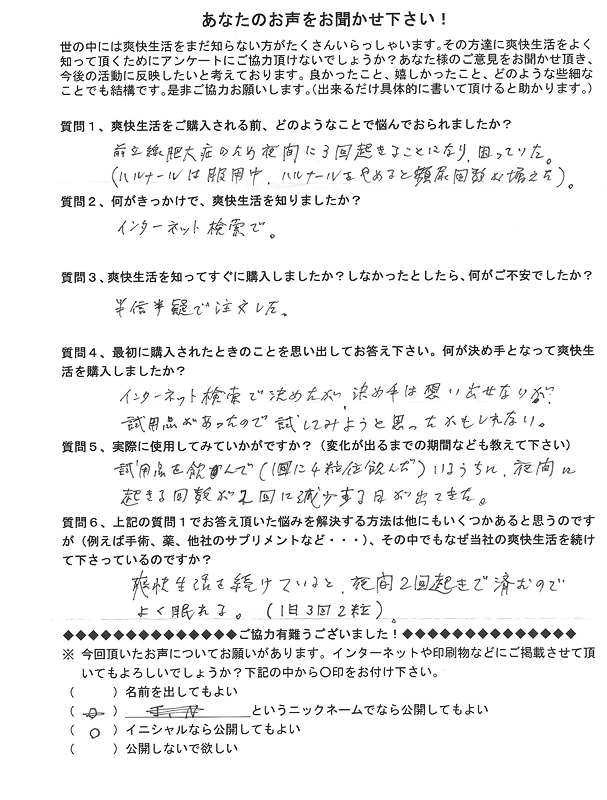 あなたのお声をお聞かせ下さい！
世の中には爽快生活をまだ知らない方がたくさんいらっしゃいます。その方達に爽快生活をよく
知って頂くためにアンケートにご協力頂けないでしょうか？あなた様のご意見をお聞かせ頂き、
今後の活動に反映したいと考えております。良かったこと、嬉しかったこと、どのような些細な
ことでも結構です。是非ご協力お願いします。（出来るだけ具体的に書いて頂けると助かります。）
質問１、爽快生活をご購入される前、どのようなことで悩んでおられましたか？
前立線肥大症のため夜間に３回起きることになり、困っていた。
（ハルナールは服用中、ハルナールをやめると頻尿回数が増えた）。
質問２、何がきっかけで、爽快生活を知りましたか？
インターネット検索で。
質問３、爽快生活を知ってすぐに購入しましたか？しなかったとしたら、何がご不安でしたか？
半信半疑で注文した。
質問４、最初に購入されたときのことを思い出してお答え下さい。何が決め手となって爽快生
活を購入しましたか？
インターネット検索で決めたが、決め手は想い出せないが？
試用品があったので試してみようと思ったかもしれない。
質問５、実際に使用してみていかがですか？（変化が出るまでの期間なども教えて下さい）
試用品を飲んで（1回に4粒位飲んだ）いるうちに、夜間に
起きる回数が２回に減少する日が出てきた。
質問６、上記の質問１でお答え頂いた悩みを解決する方法は他にもいくつかあると思うのです
が（例えば手術、薬、他社のサプリメントなど・・・）、その中でもなぜ当社の爽快生活を続け
て下さっているのですか？
爽快生活を続けていると、夜間２回起きで済むので
よく眠れる。（１日３回２粒）。
◆◆◆◆◆◆◆◆◆◆◆◆◆◆ご協力有難うございました！◆◆◆◆◆◆◆◆◆◆◆◆◆◆
※ 今回頂いたお声についてお願いがあります。インターネットや印刷物などにご掲載させて頂
いてもよろしいでしょうか？下記の中から〇印をお付け下さい。
（　　）名前を出してもよい
（　　）＿＿＿＿というニックネームでなら公開してもよい
（ ○ ）イニシャルなら公開してもよい
（　　）公開しないで欲しい